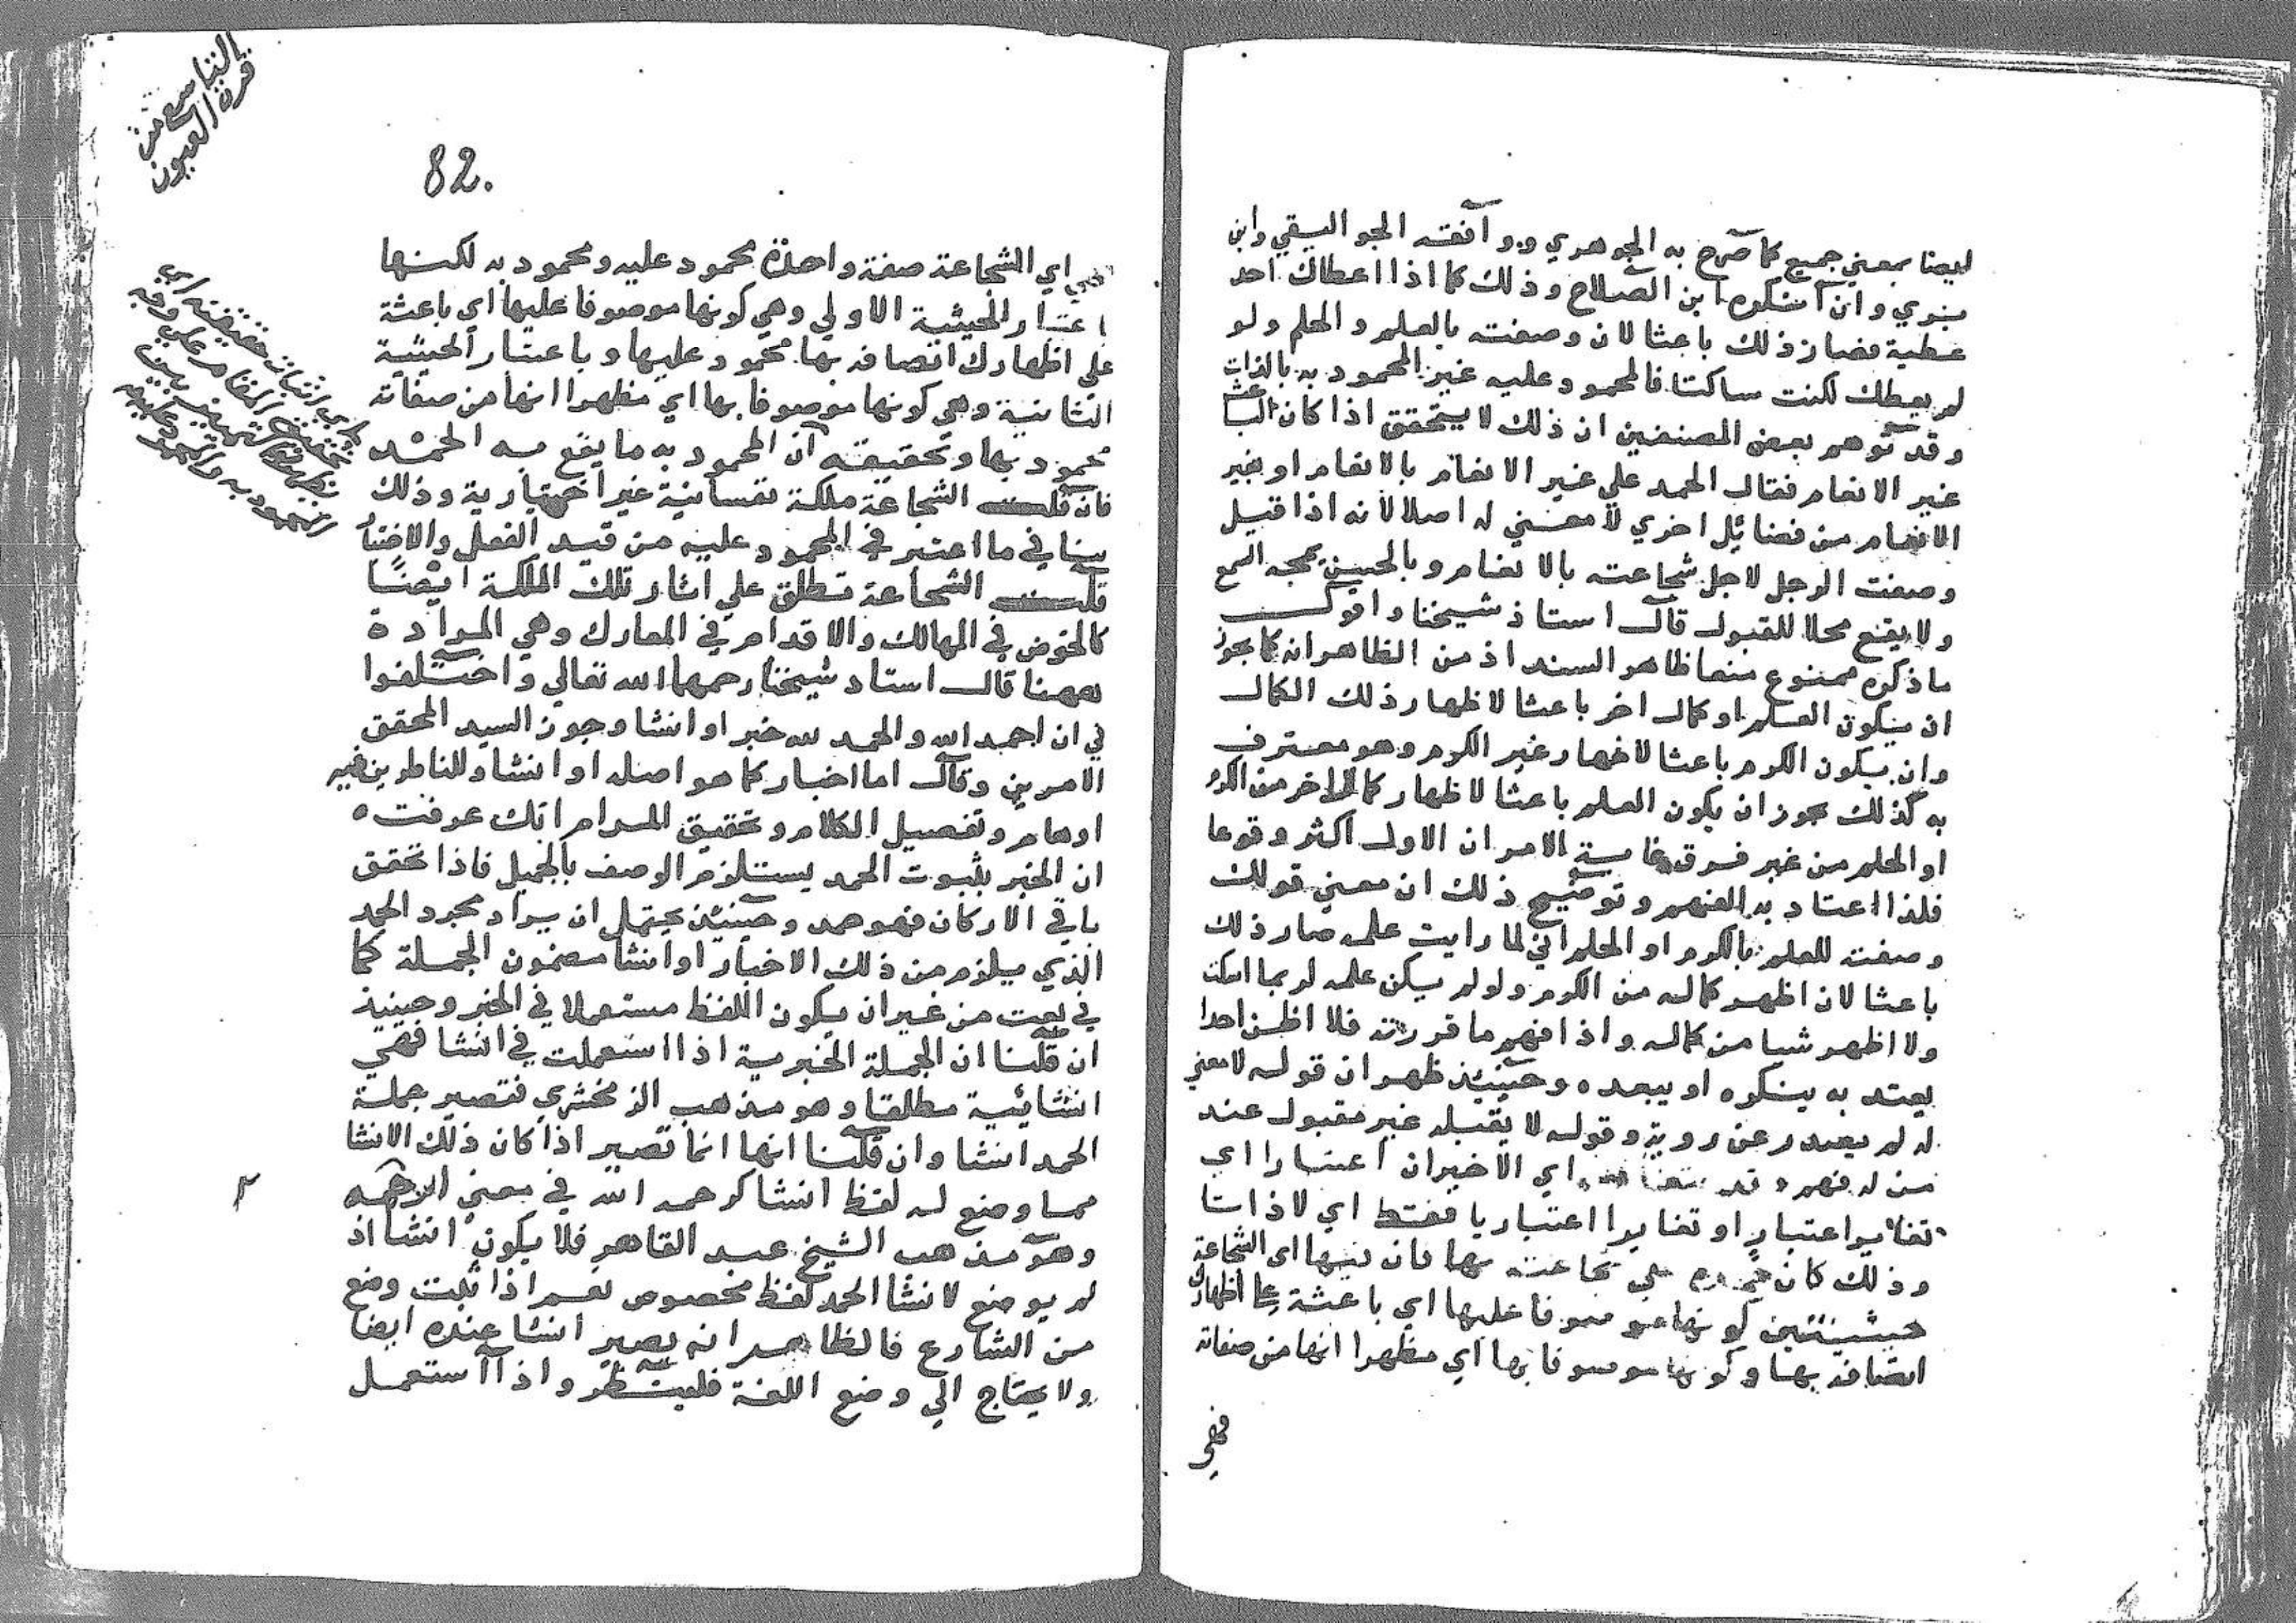 ايضا بمعني جميع كما صرح به الجوهري ووافقه الجواليقي وابن
بري وان انكره ابن الصلاح وذلك كما اذا اعطاك احد
عطية فصار ذلك باعثا لان وصفته بالعلم والحلم ولو
لم يعطك لكنت ساكتا فالمحمود عليه غير المحمود به بالذات
وقد توهم بعض المصنفين ان ذلك لا يتحقق اذا كان الباعث
غير الانعام فقال الحمد علي غير الانعام بالانعام او بغير
الانعام من فضائل اخري لا معني له اصلا لانه اذا قيل
وصفت الرجل لاجل شجاعته بالانعام وبالحسن يمجه السمع
ولا يقع محلا للقبول قال استاذ شيخنا واقول
ما ذكره ممنوع منعا ظاهر السند اذ من الظاهر انه كما يجوز
ان يكون العلم او كمال اخر باعثا لاظهار ذلك الكمال
وان يكون الكرم باعثا لاظهار غير الكرم وهو معترف
به كذلك يجوز ان يكون العلم باعثا لاظهار كمال اخر من الكرم
او الحلم من غير فرق غاية الامر ان الاول اكثر وقوعا
فلذا اعتاد به الفهم وتوضيح ذلك ان معني قولك
وصفت للعلم بالكرم او الحلم اني لما رايت علمه صار ذلك
باعثا لان اظهر كماله من الكرم ولو لم يكن علمه لربما اسكت
ولا اظهر شيا من كماله واذا فهم ما قررته فلا اظن احدا
يعتد به ينكره او يبعده وحينئذ ظهر ان قوله لا معني
له لم يصدر عن روية وقوله لا يقبله غير مقبول عند
من له فهم وقد اي الاخيران اعتبارا اي
تغاير اعتبار او تغايرا اعتباريا فقط اي لا ذاتا
وذلك كان علي شجاعته بها فان فيها اي الشجاعة
حيثيتين كونها موصوفا عليها اي باعثة علي اظهارك
اتصافه بها وكونها موصوفا بها اي مظهرا انها من صفاته
فهي
التاسع من
قرة العيون
82.
اي الشجاعة صفة واحدة محمود عليه ومحمود به لكنها
باعتبار الحيثية الاولي وهي كونها موصوفا عليها اي باعثة
علي اظهارك اتصافه بها محمود عليها وباعتبار الحيثية
الثانية وهي كونها موصوفا بها اي مظهرا انها من صفاته
محمود بها وتحقيقه ان المحمود به ما يقع به الحمد
فان قلت الشجاعة ملكة نفسانية غير اختيارية وذلك
ينافي ما اعتبر في المحمود عليه من قيد الفعل والاختيار
قلت الشجاعة تطلق علي اثار تلك الملكة ايضا
كالخوض في المهالك والاقدام في المعارك وهي المرادة
ههنا قال استاد شيخنا رحمهما الله تعالي واختلفوا
في ان احمد الله والحمد لله خبر او انشا وجوز السيد المحقق
الامرين وقال اما اخبار كما هو اصله او انشا وللناظرين فيه
اوهام وتفصيل الكلام وتحقيق المرام انك عرفت ه
ان الخبر بثبوت الحمد يستلزم الوصف بالجميل فاذا تحقق
باقي الاركان فهو حمد وحينئذ يحتمل ان يراد مجرد الحمد
الذي يلزم من ذلك الاخبار او انشا مضمون الجملة كما
في بعت من غير ان يكون اللفظ مستعملا في الخبر وحينيذ
ان قلنا ان الجملة الخبرية اذا استعملت في انشا فهي
انشائية مطلقا وهو مذهب الزمخشري فتصير جملة
الحمد انشا وان قلنا انها انما تصير اذا كان ذلك الانشا
مما وضع له لفظ انشا كرحمه الله في معني ارحمه
وهو مذهب الشيخ عبد القاهر فلا يكون انشا اذ
لم يوضع لانشا الحمد لفظ مخصوص نعم اذا ثبت وضع
من الشارع فالظاهر انه يصير انشا عنده ايضا
ولا يحتاج الي وضع اللغة فلينظر واذا استعمل